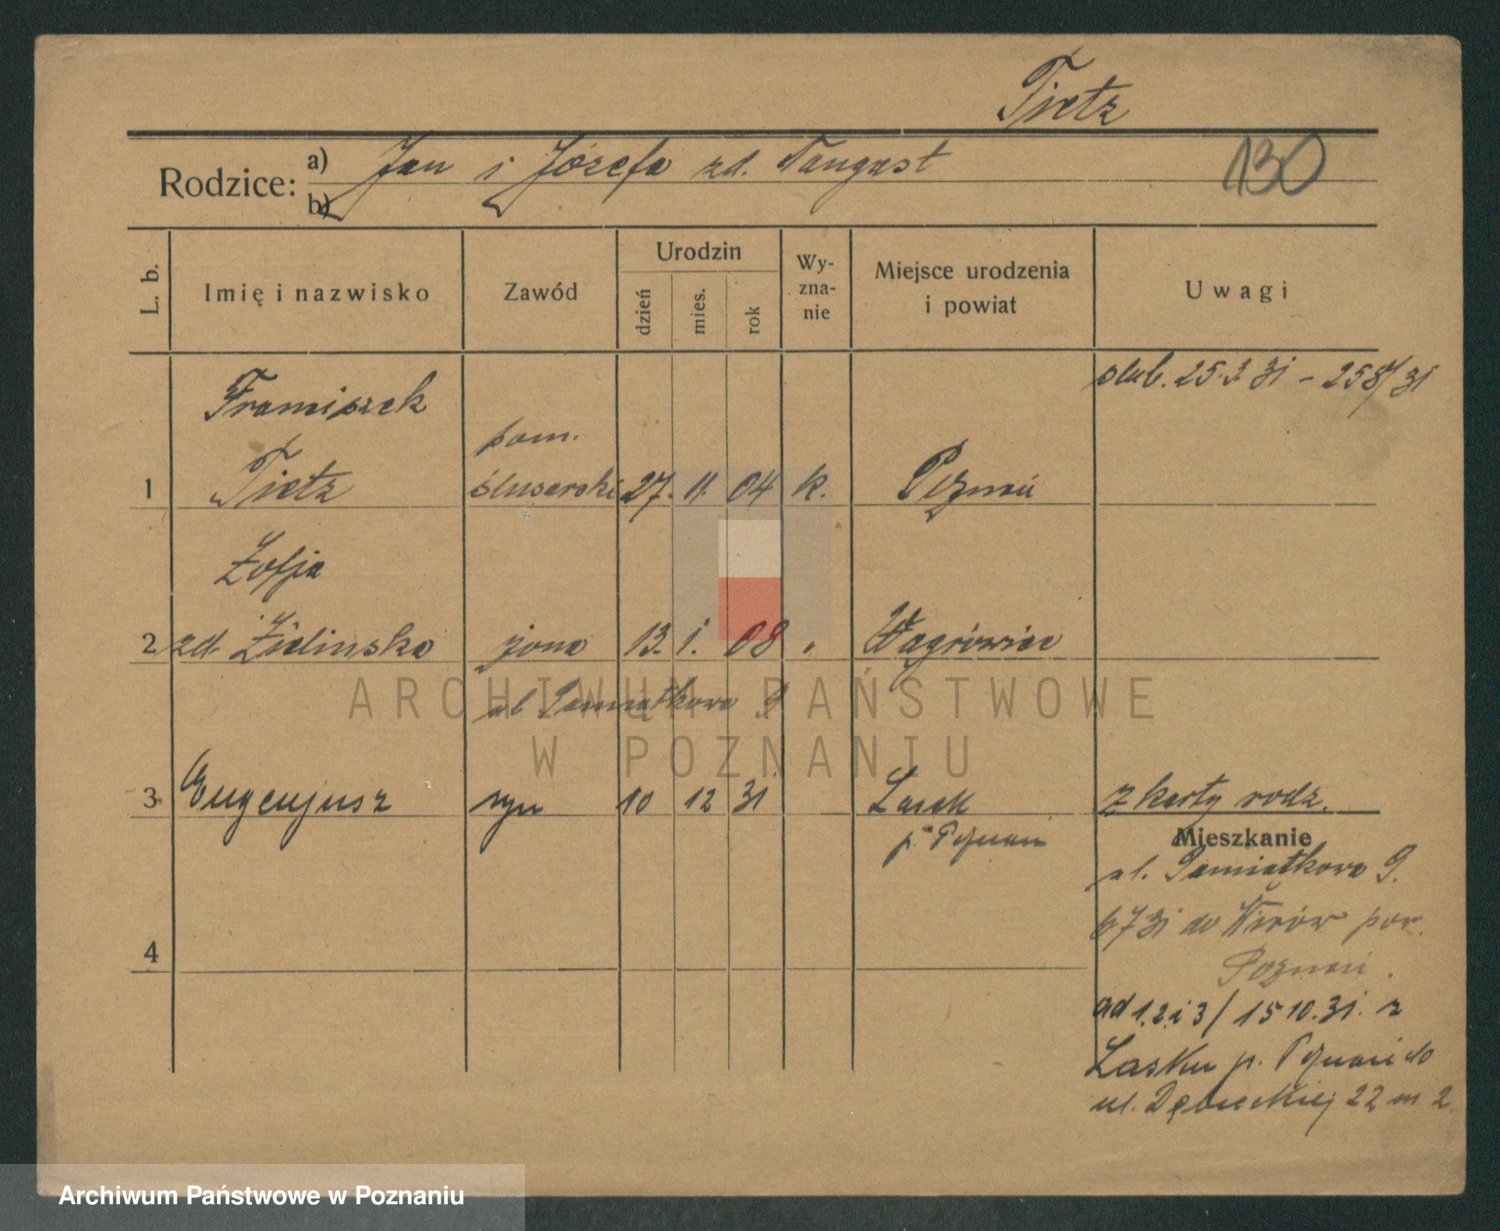 Tietz
Rodzice:
a) Jan i Józefa zd. Tangast
b)
130
L. b.
Imię i nazwisko
Zawód
Urodzin
dzień
mies.
rok
Wy-
zna-
nie
Miejsce urodzenia
i powiat
Uwagi
ślub. 25.3.31 - 258/31
Franciszek
pom.
1 Tietz ślusarski 27. 11. 04 k. Poznań
Zofja
2 zd. Zielinska żona 13. 1. 08 " Wągrówiec
ul Pamiątkowa 9
3 Eugenjusz syn 10 12 31 Lasek z karty rodz.
p. Poznań
Mieszkanie
ul. Pamiątkowa 9.
6731 do Wirów pow.
Poznań.
4
ad 1.2.i 3/ 15 10.31. z
Lasku p. Poznań do
ul. Dębieckiej 22 m 2
ARCHIWUM PAŃSTWOWE
W POZNANIU
Archiwum Państwowe w Poznaniu